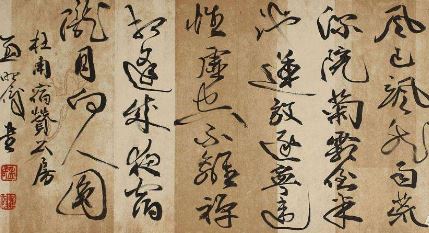 風已颯然雨荒
深院菊霜倒半
池蓮放逐寧違
性虛空不離禪
相逢成夜宿
隴月向人圓
杜甫宿贊公房
書